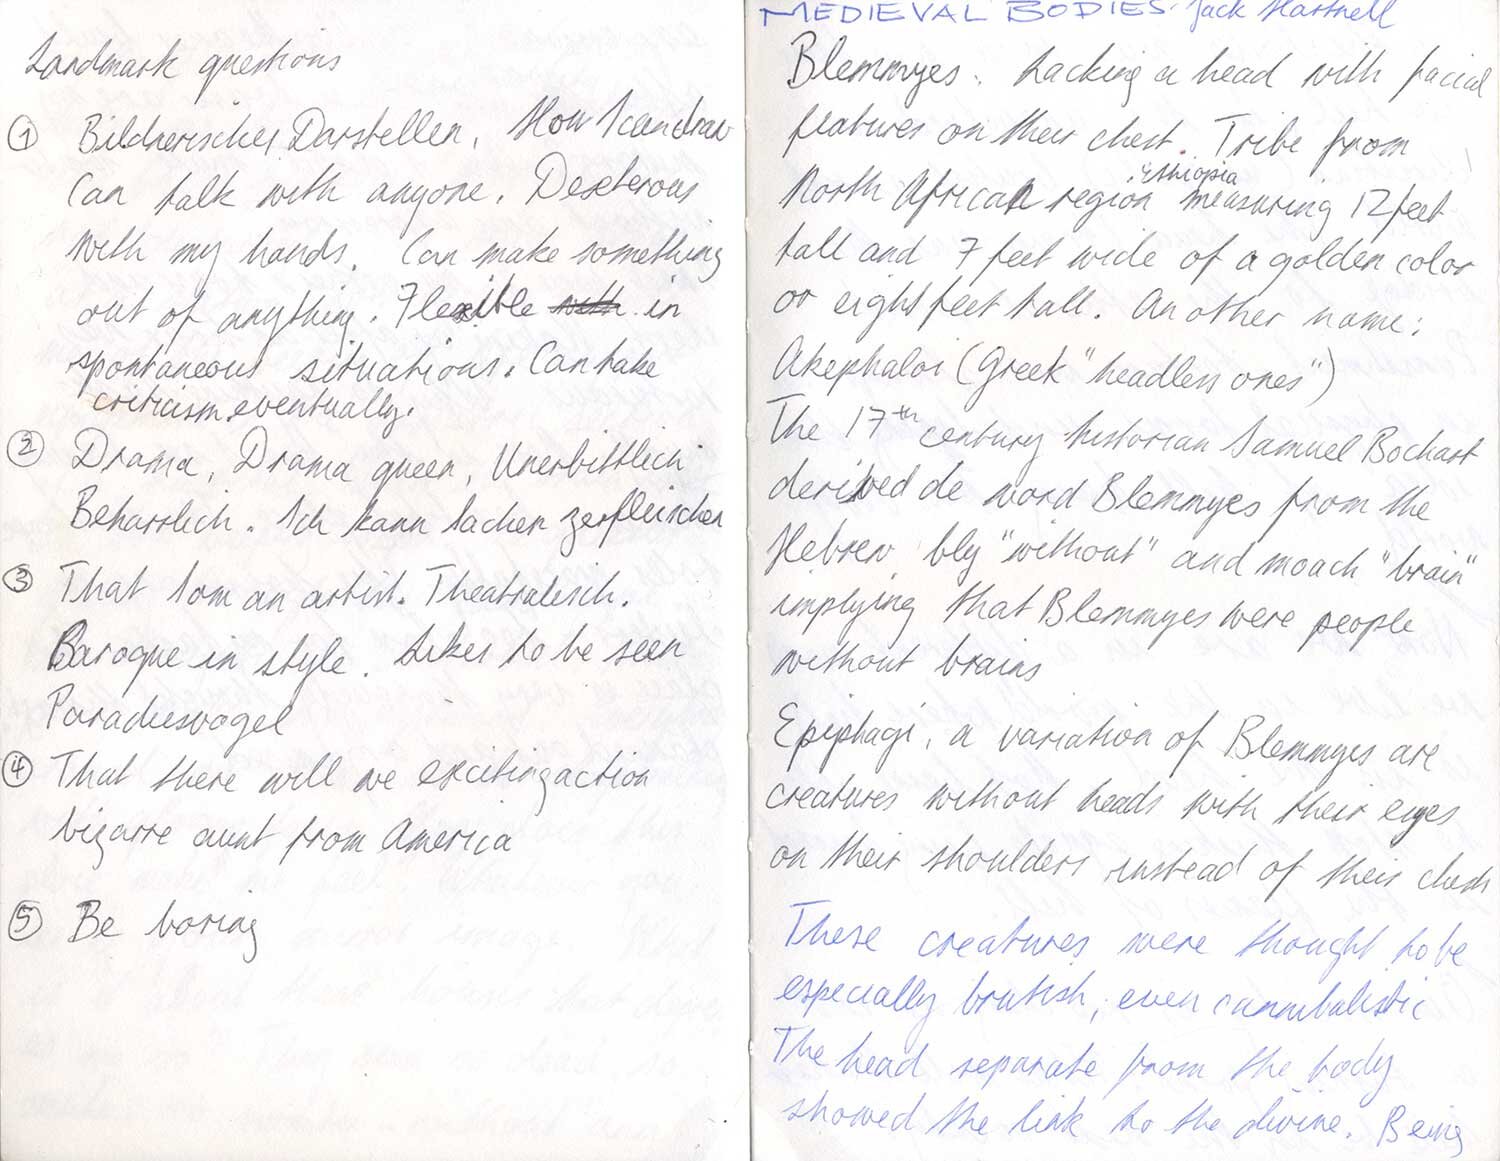 Landmark questions
① Bildnerisches Darstellen, How I can draw
Can talk with anyone. Dexterous
with my hands. Can make something
out of anything. Flexible with in
spontaneous situations. Can take
criticism eventually.
② Drama, Drama queen, Unerbittlich
Beharrlich. Ich kann Sachen zerfleischen
③ That I am an artist. Theatralisch.
Baroque in style. Likes to be seen
Paradiesvogel
④ That there will we exciting action
bizarre aunt from America
⑤ Be boring
MEDIEVAL BODIES. Jack Hartnell
Blemmyes. Lacking a head with facial
features on their chest. Tribe from
North African region Ethiopia measuring 12 feet
tall and 7 feet wide of a golden color
or eight feet tall. Another name:
Akephaloi (Greek "headless ones")
The 17th century historian Samuel Bochart
derived de word Blemmyes from the
Hebrew bly "without" and moach "brain"
implying that Blemmyes were people
without brains
Epiphagi, a variation of Blemmyes are
creatures without heads with their eyes
on their shoulders instead of their chest
These creatures were thought to be
especially brutish, even cannibalistic
The head separate from the body
showed the link to the divine. Being